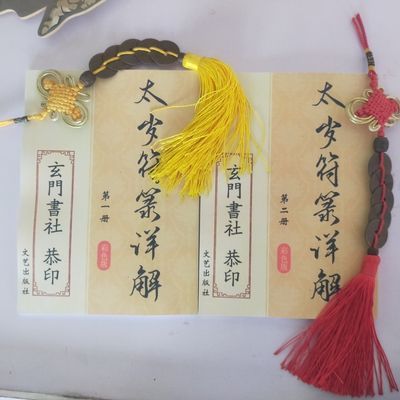 太岁符箓详解
第一册
彩色版
玄門書社 恭印
文艺出版社
太岁符箓详解
第二册
彩色版
玄門書社 恭印
文艺出版社